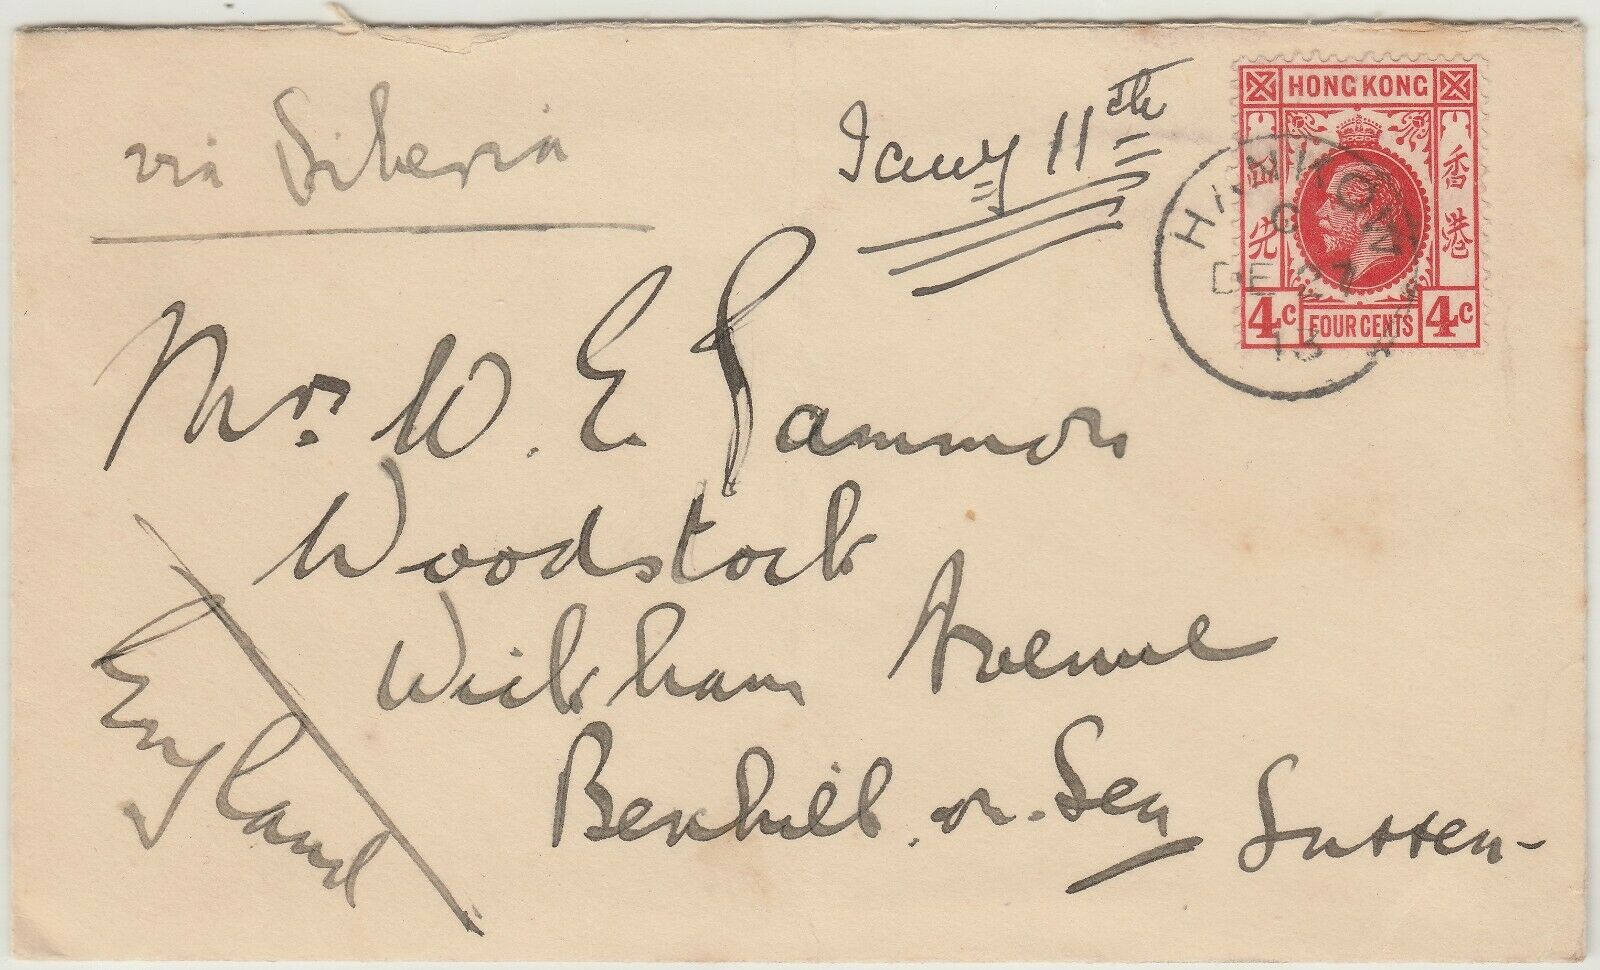 via Siberia
Jany 11th
HONG KONG
香港
壹先
4c FOUR CENTS 4c
HANKOW
C
DE 27
13
Mrs. W. E. Gammon
Woodstock
Wickham Avenue
Bexhill.on.Sea
Sussex
England